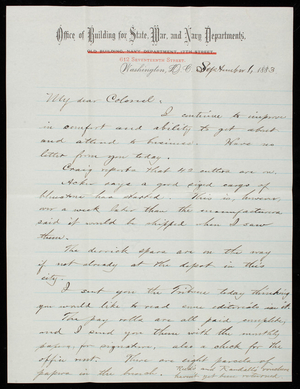 Office of Building for State, War, and Navy Departments,
OLD BUILDING NAVY DEPARTMENT, 17TH STREET,
612 SEVENTEENTH STREET,
Washington, D.C. September 1, 1883
My dear Colonel:
I continue to improve
in comfort and ability to get about
and attend to business. Have no
letter from you today.
Craig reports that 42 cutters are on.
Acker says a good signed says if
bluestone has started. This is, however,
now a week later than the manufacturers
said it would be shipped when I saw
them.
The derrick spars are on the way
if not already at the depot in this
city.
I sent you the Tribune today thinking
you would like to read some editorials in it.
The pay rolls are all paid complete,
and I send you them with the monthly
papers, for signature, also a check for the
office rent. There are eight parcels of
papers in the bunch.
and Randall's vouchers
have not yet been returned.